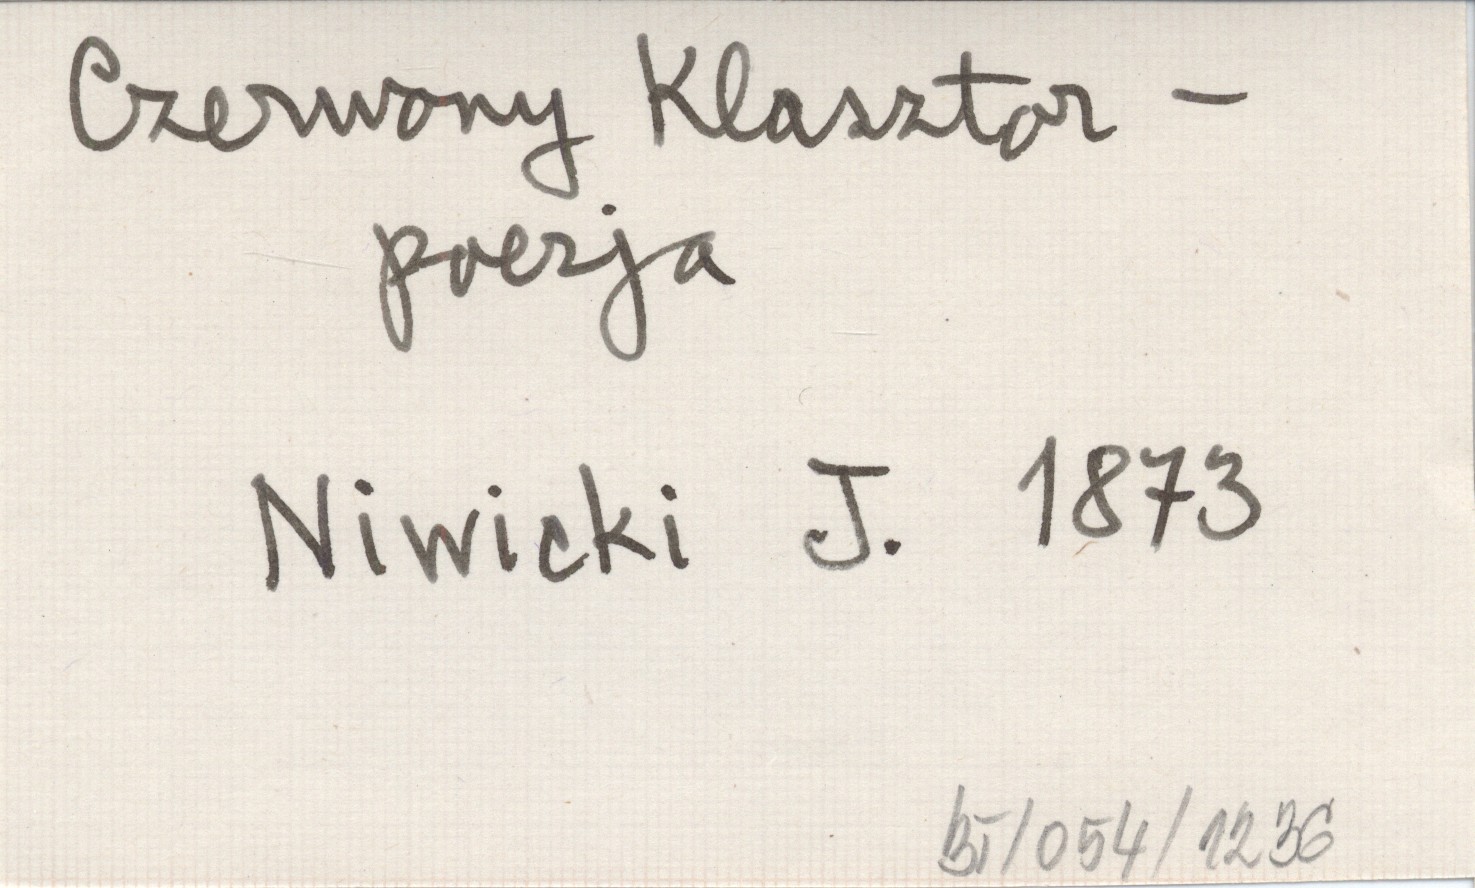 Czerwony Klasztor –
poezja
Niwicki J. 1873
/054/1236